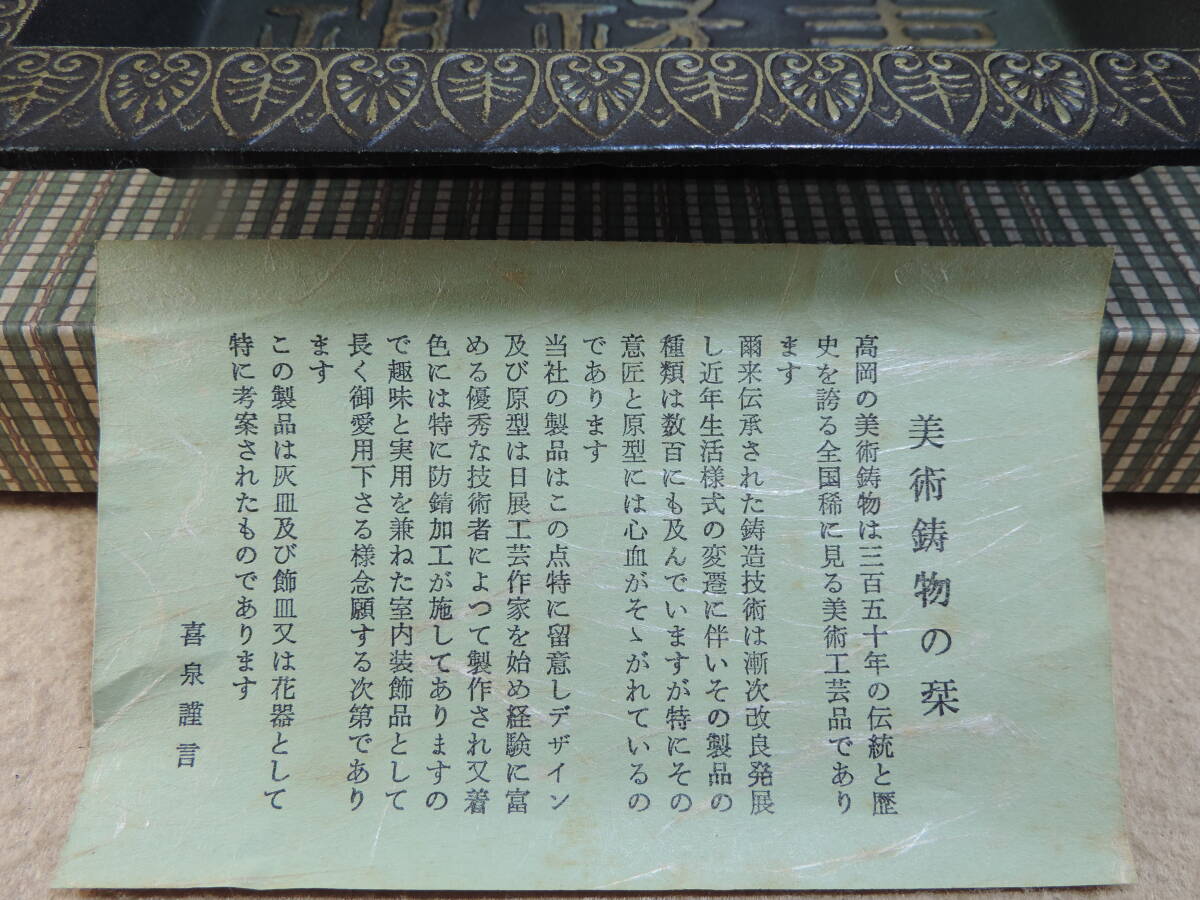 美術鋳物の栞
高岡の美術鋳物は三百五十年の伝統と歴
史を誇る全国稀に見る美術工芸品であり
ます
爾来伝承された鋳造技術は漸次改良発展
し近年生活様式の変遷に伴いその製品の
種類は数百にも及んでいますが特にその
意匠と原型には心血がそゝがれているの
であります
当社の製品はこの点特に留意しデザイン
及び原型は日展工芸作家を始め経験に富
める優秀な技術者によつて製作され又着
色には特に防錆加工が施してありますの
で趣味と実用を兼ねた室内装飾品として
長く御愛用下さる様念願する次第であり
ます
この製品は灰皿及び飾皿又は花器として
特に考案されたものであります
喜泉謹言